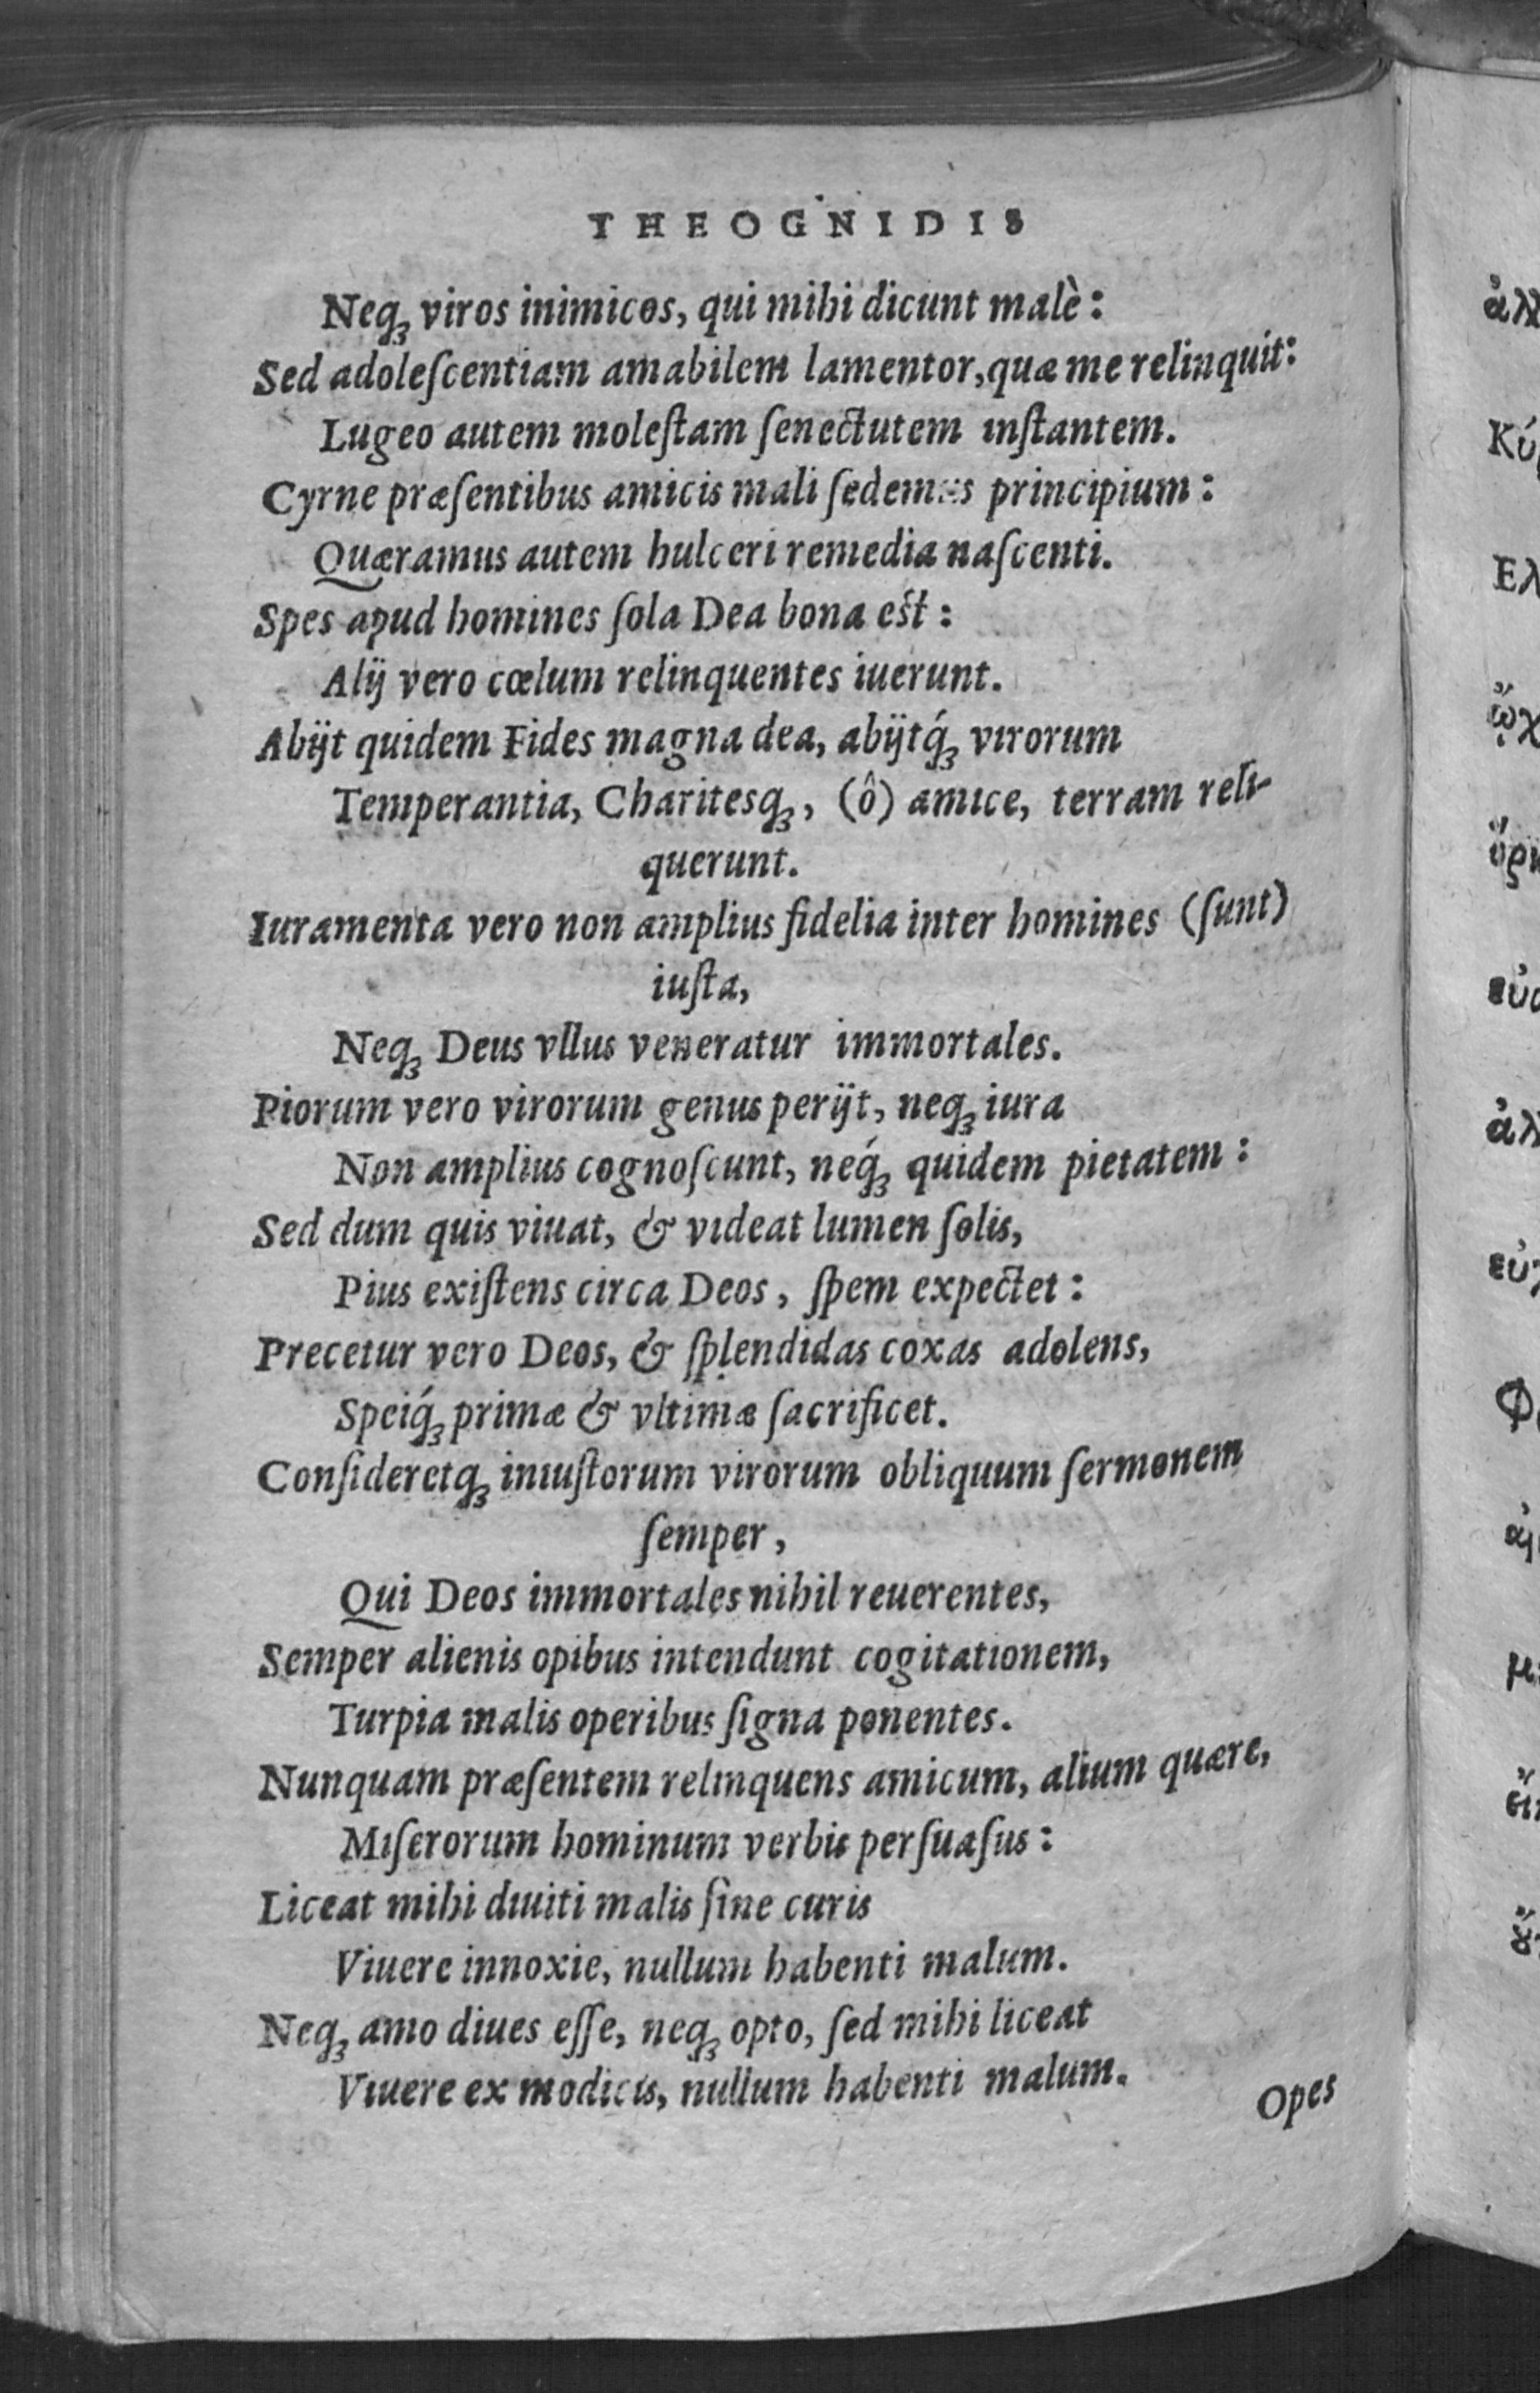 THEOGNIDIS
Neq́ꝫ viros inimicos, qui mihi dicunt malè:
Sed adoleſcentiam amabilem lamentor, quæ me relinquit:
Lugeo autem moleſtam ſenectutem inſtantem.
Cyrne præſentibus amicis mali ſedemus principium:
Quæramus autem hulceri remedia naſcenti.
Spes apud homines ſola Dea bona eſt:
Alij vero cœlum relinquentes iuerunt.
Abijt quidem Fides magna dea, abijtq́ꝫ virorum
Temperantia, Charitesqꝫ, (ô) amice, terram reli-
querunt.
Iuramenta vero non amplius fidelia inter homines (ſunt)
iuſta,
Neqꝫ Deus vllus veneratur immortales.
Piorum vero virorum genus perijt, neqꝫ iura
Non amplius cognoſcunt, neq́ꝫ quidem pietatem:
Sed dum quis viuat, & videat lumen ſolis,
Pius exiſtens circa Deos, ſpem expectet:
Precetur vero Deos, & ſplendidas coxas adolens,
Speiq́ꝫ primæ & vltimæ ſacrificet.
Conſideretqꝫ iniuſtorum virorum obliquum ſermonem
ſemper,
Qui Deos immortales nihil reuerentes,
Semper alienis opibus intendunt cogitationem,
Turpia malis operibus ſigna ponentes.
Nunquam præſentem relinquens amicum, alium quære,
Miſerorum hominum verbis perſuaſus:
Liceat mihi diuiti malis ſine curis
Viuere innoxie, nullum habenti malum.
Neqꝫ amo diues eſſe, neqꝫ opto, ſed mihi liceat
Viuere ex modicis, nullum habenti malum.
Opes